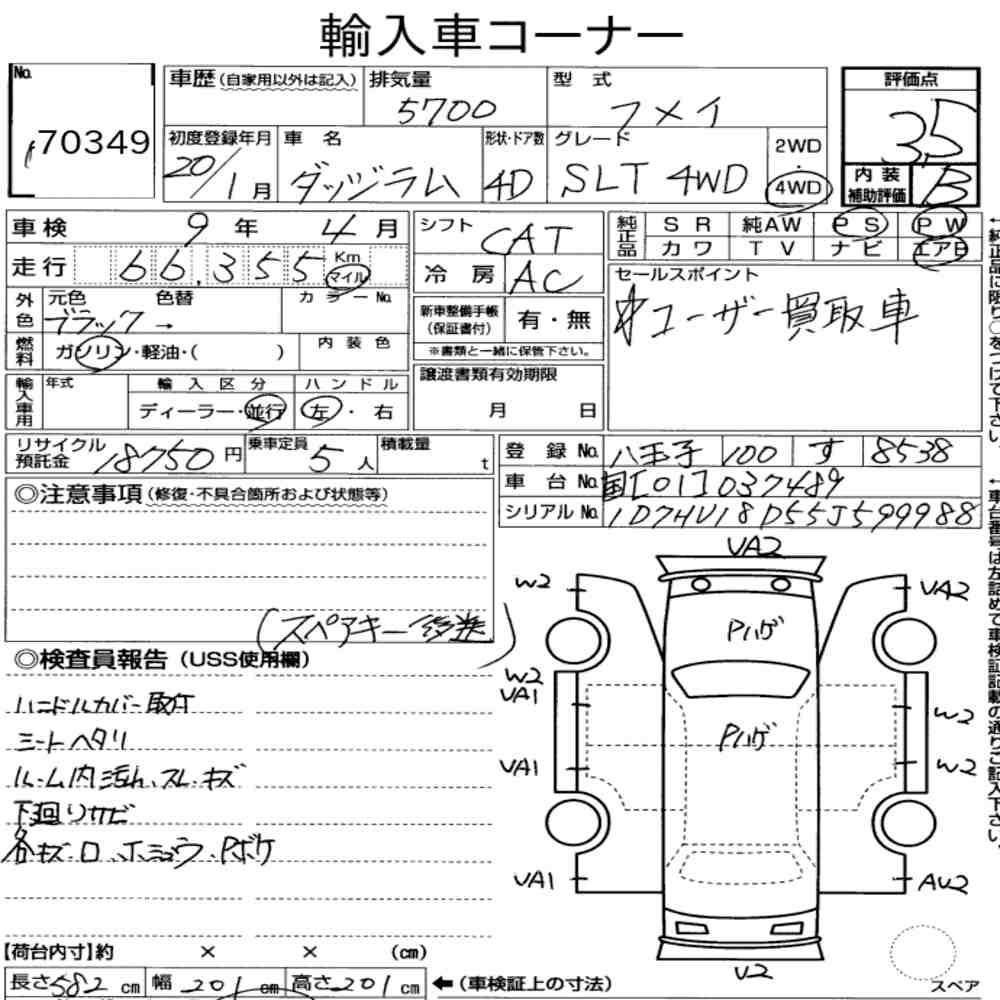 輸入車コーナー
No. 70349
車歴 (自家用以外は記入)
排気量 5700
型式 フメイ
評価点 3.5
初度登録年月 20/1月
車名 ダッジラム
形状・ドア数 4D
グレード SLT 4WD
2WD ・ 4WD
内装補助評価 B
車検 9年 4月
シフト CAT
純正品 SR 純AW PS PW
カワ TV ナビ エアB
走行 66,355 Km マイル
冷房 AC
セールスポイント
ユーザー買取車
外色 元色 色替 カラーNo.
ブラック →
新車整備手帳(保証書付) 有・無
※書類と一緒に保管下さい。
燃料 ガソリン・軽油・( ) 内装色
譲渡書類有効期限
月 日
輸入車用 年式 輸入区分 ハンドル
ディーラー・並行 左・右
リサイクル預託金 18750円
乗車定員 5人
積載量 t
登録No. 八王子 100 す 8538
車台No. 国[01]037489
シリアルNo. 1D7HU18D55J599988
◎注意事項 (修復・不具合箇所および状態等)
(スペアキー後送)
◎検査員報告 (USS使用欄)
ハンドルカバー取付
シートヘタリ
ルーム内汚れ、スレ・キズ
下廻りサビ
各キズ・ロ
Pボケ
VA2
W2
VA2
Pハゲ
W2
VA1
W2
Pハゲ
VA1
W2
VA1
AU2
U2
スペア
【荷台内寸】約 × × (cm)
長さ 582 cm 幅 201 cm 高さ 201 cm ←(車検証上の寸法)
←純正品に限り○をつけて下さい。
←車台番号は左詰めで車検証記載の通りご記入下さい。